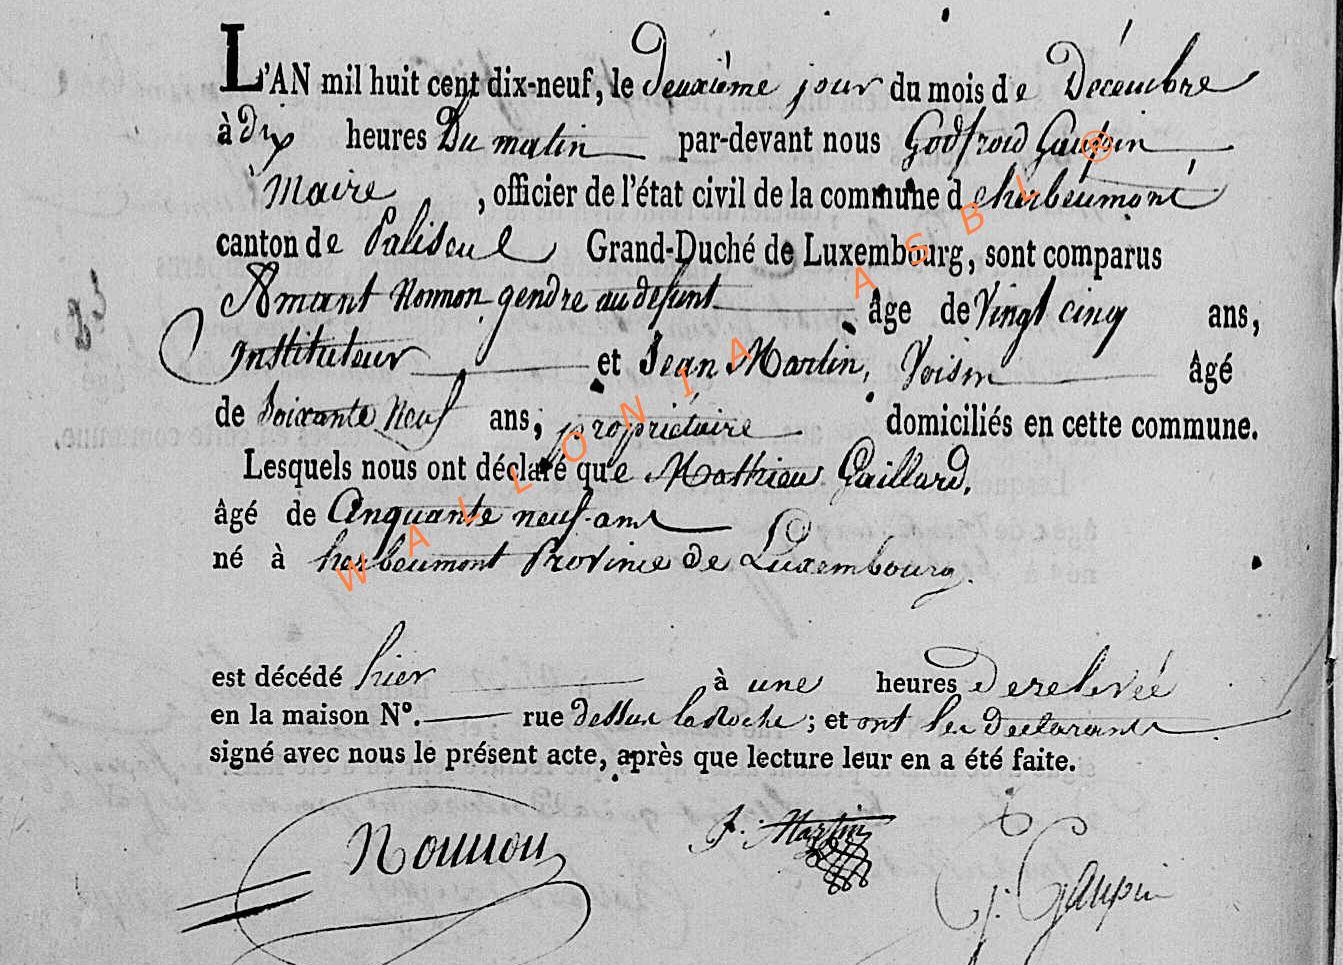 L'AN mil huit cent dix-neuf, le deuxième jour du mois de Décembre
à dix heures Du matin par-devant nous Godfroid Gaupin
Maire, officier de l'état civil de la commune d'herbeumont
canton de Paliseul Grand-Duché de Luxembourg, sont comparus
Amant Nonnon gendre au defunt âgé de Vingt cinq ans,
Instituteur et Jean Martin, Voisin âgé
de Soixante Neuf ans, proprietaire domiciliés en cette commune.
Lesquels nous ont déclaré que Mathieu Gaillard,
âgé de Cinquante neuf ans
né à herbeumont Province de Luxembourg.
est décédé hier à une heures De relevée
en la maison N°. rue dessus la Roche ; et ont les Declarants
signé avec nous le présent acte, après que lecture leur en a été faite.
Nonnon J. Martin
g. Gaupin
WALLONIA ASBL ®